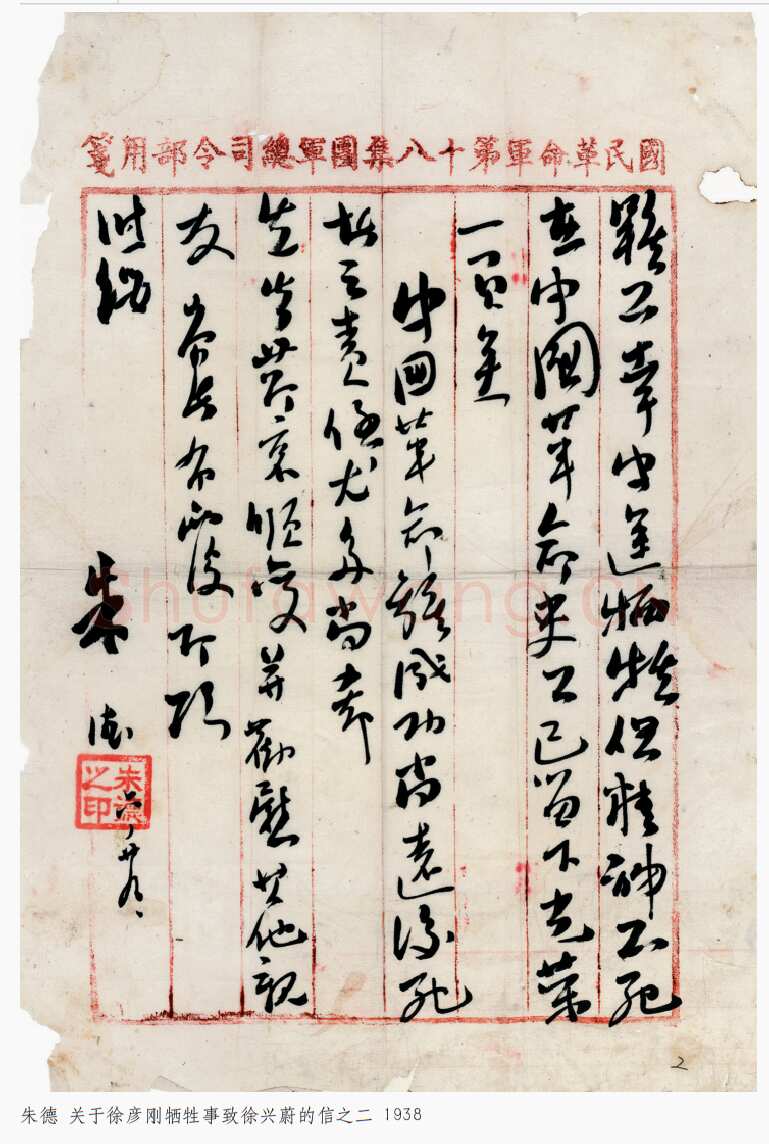 國民革命軍第十八集團軍總司令部用箋
雖不幸中途犧牲但精神不死
在中國革命史上已留下光榮
一頁矣
中國革命離成功尚遠後死
者之責任尤多尚希
先生等節哀順變并勸慰其他親
友 耑此布覆 即頌
時綏
朱德
朱德之印
六、廿九、
2
Shufawang.cn
朱德 关于徐彦刚牺牲事致徐兴蔚的信之二 1938